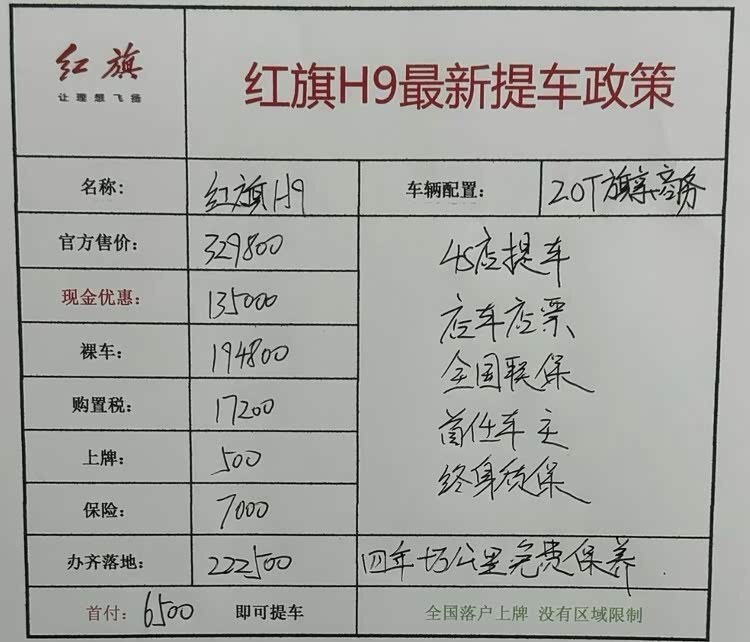 红旗
让理想飞扬
红旗H9最新提车政策
名称: 红旗H9 车辆配置: 2.0T旗享商务
官方售价: 329800
现金优惠: 135000
裸车: 194800
购置税: 17200
上牌: 500
保险: 7000
办齐落地: 222500
4S店提车
店车店票
全国联保
首任车主
终身质保
四年十万公里免费保养
首付: 6500 即可提车
全国落户上牌 没有区域限制